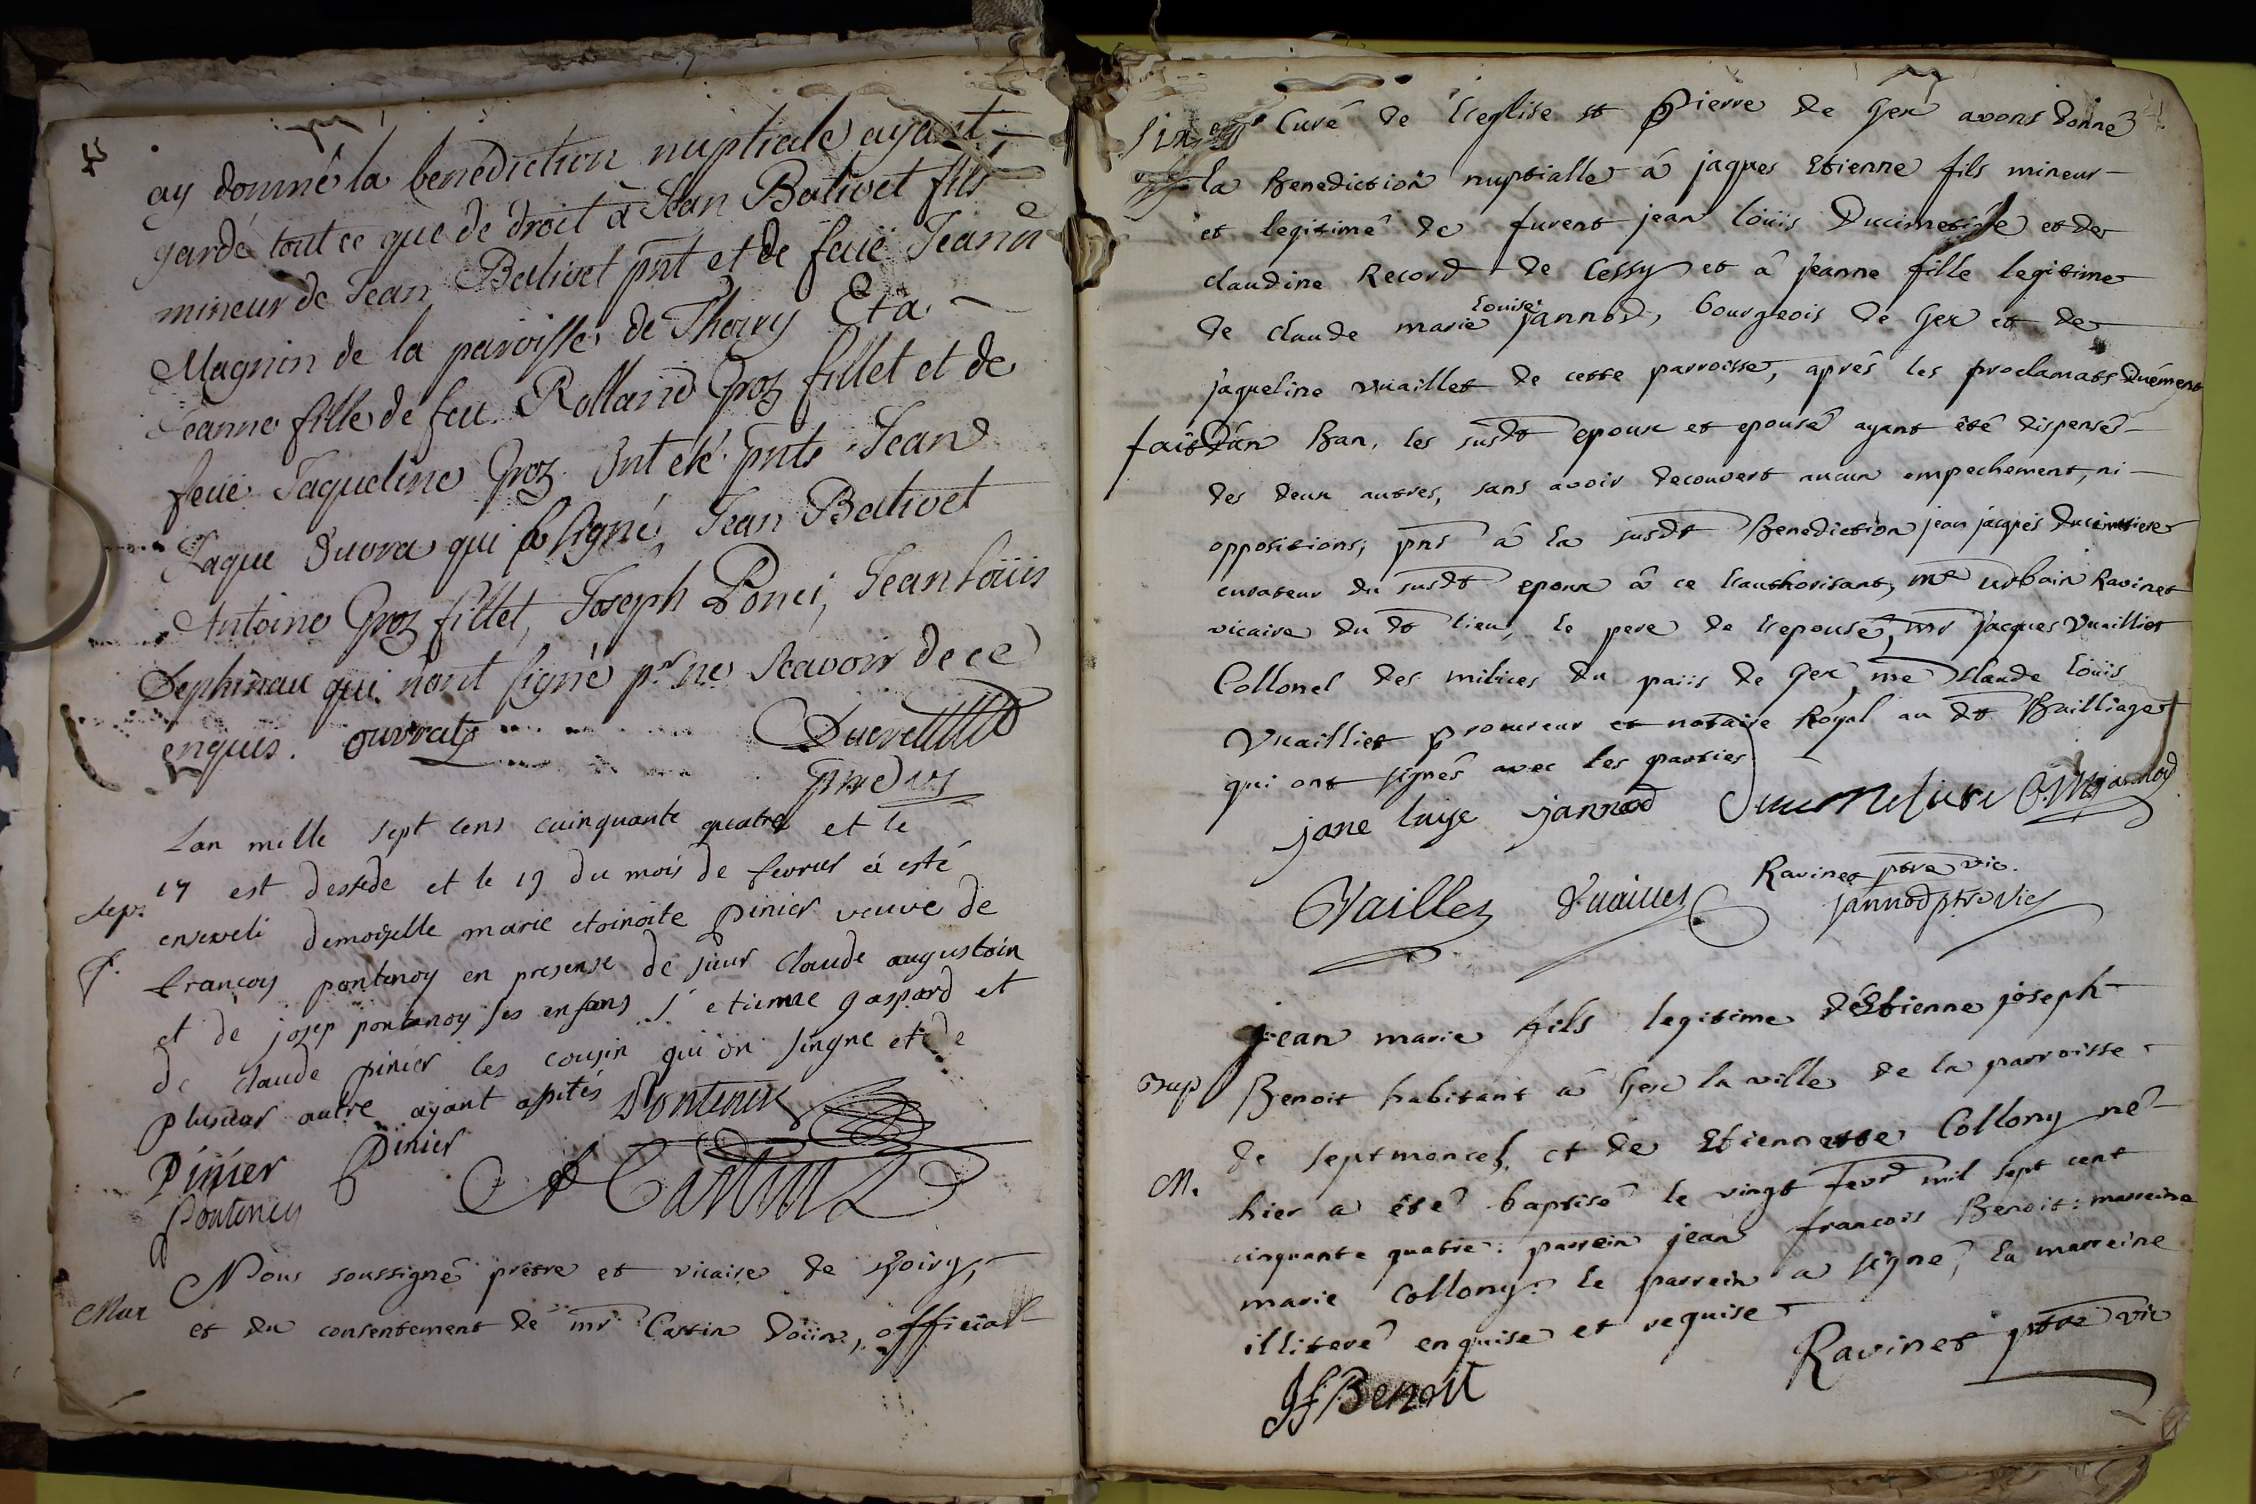 ay donné la benediction nuptiale ayant
gardé tout ce que de droit à Jean Balivet fils
mineur de Jean Balivet pnt et de feüe Jeanne
Magnin de la paroisse de Thoiry Et a
Jeanne fille de feu Rolland Groz fillet et de
feüe Jaqueline Groz Ont eté pnts Jean
Jaque Duvra qui a signé, Jean Balivet
Antoine Groz fillet, Joseph Ponci, Jean loüis
Dephinau qui n'ont signé pr ne scavoir de ce
enquis.
Lan mille sept cens cuinquante quatre et le
17 est dessede et le 19 du mois de fevrus à esté
Sep.
enseveli demoiselle marie etoinoite pinier veuve de
francoy pontenoy en presense de sieur claude augustoin
et de josep pontenoy ses enfans s etienne gaspard et
de claude pinier les cousin qui on singne et de
plusieur autre ayant asistés Pontenier
Pinier Pinier
Pontenier
Nous soussigné prêtre et vicaire de
Mar
et du consentement de mr Castin doiien, official
Curé de l'eglise st Pierre de Gex avons donné
la Benediction nuptialle â jaques Etienne fils mineur
et legitime de furent jean loüis Ducimetire et de
claudine Record de Cessy et â jeanne fille legitime
louise
de claude marie jannod, bourgeois de Gex et de
jaqueline vuaillet de cette parroisse, aprês les proclamats duêment
fait d'un Ban, les susdt epoux et epouse ayant étê dispensê
des deux autres, sans avoir decouvert aucun empechement, ni
oppositions; pns â la susdt Benediction jean jacques Ducimetiere
curateur du susdt epoux â ce l'authorisant, me urbain Ravinet
vicaire du dt lieu, le pere de l'epouse, mr jacques Vuaillet
Collonel des milices du païs de Gex, me claude loüis
Vuailliet procureur et notaire Royal au dt Bailliage
qui ont signês avec les parties
jane luise jannod
Ravinet ptre vic.
Vaillez
jannod ptre vic
jean marie fils legitime d'Etienne joseph
Bap
Benoit habitant â Gex la ville de la parroisse
de septmoncel, et de Etiennette Collony nê
M.
hier a étê baptisê le vingt fevr mil sept cent
cinquante quatre: parrein jean francois Benoit: marreine
marie Collony: le parrein a signê, la marreine
illiterê enquise et requise
Ravinet ptre vic
Jf Benoit